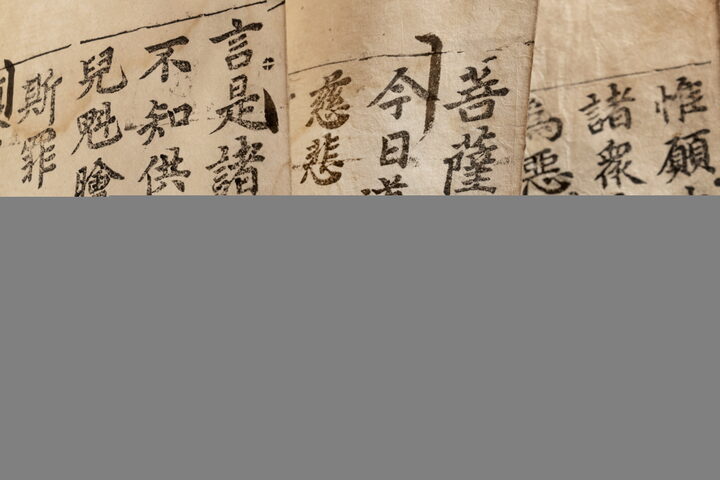 惟願
諸衆
為惡
菩薩
今日
慈悲
言是諸
不知供
兒魁膾
斯罪